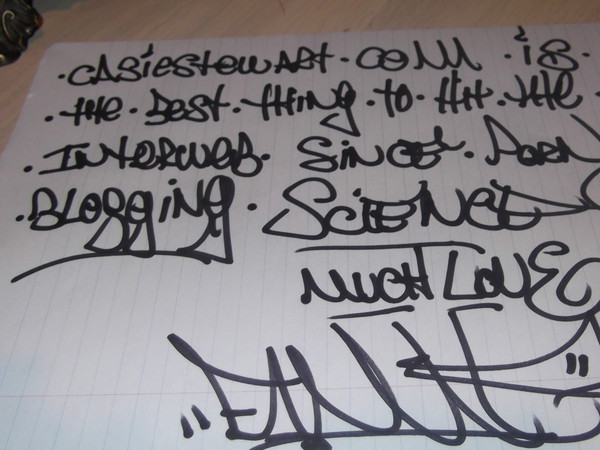 .CASIESTEWART.COM.iS.
.THE.BEST.THiNG.TO.HIT.THE
.INTERWEB. SiNCE.PORN
.BLOGGiNG.SCiENCE
MUCH LOVE